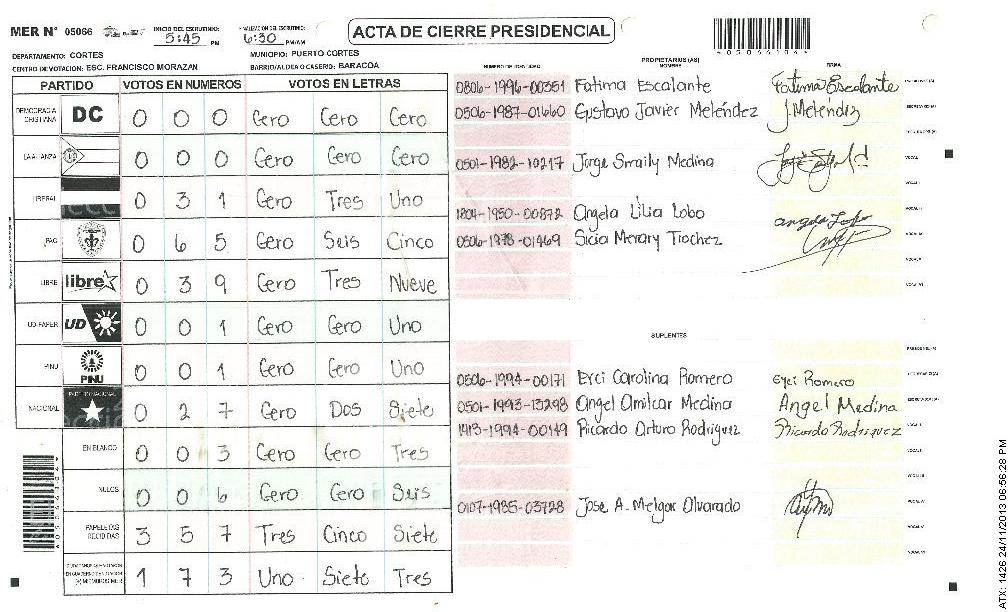 MER Nº 05066
INICIO DEL ESCRUTINIO: 5:45 PM
FINALIZACION DEL ESCRUTINIO: 6:30 PM/AM
ACTA DE CIERRE PRESIDENCIAL
DEPARTAMENTO: CORTES
MUNICIPIO: PUERTO CORTES
CENTRO DE VOTACION: ESC. FRANCISCO MORAZAN
BARRIO/ALDEA O CASERIO: BARACOA
PARTIDO VOTOS EN NUMEROS VOTOS EN LETRAS
DEMOCRACIA CRISTIANA DC 0 0 0 Cero Cero Cero
LA ALIANZA 0 0 0 Cero Cero Cero
LIBERAL 0 3 1 Cero Tres Uno
PAC 0 6 5 Cero Seis Cinco
LIBRE libre 0 3 9 Cero Tres Nueve
UD-FAPER UD 0 0 1 Cero Cero Uno
PINU PINU 0 0 1 Cero Cero Uno
NACIONAL PARTIDO NACIONAL 0 2 7 Cero Dos Siete
EN BLANCO 0 0 3 Cero Cero Tres
NULOS 0 0 6 Cero Cero Seis
PAPELETAS RECIBIDAS 3 5 7 Tres Cinco Siete
1 7 3 Uno Siete Tres
PROPIETARIOS (AS)
NUMERO DE IDENTIDAD NOMBRE FIRMA
0806-1996-00351 Fatima Escalante Fatima Escalante
0506-1987-01660 Gustavo Javier Meléndez J. Meléndez
0501-1982-10217 Jorge Smaily Medina
1804-1950-00872 Angela Lilia Lobo angela Lobo
0506-1978-01469 Sicia Merary Trochez
SUPLENTES
0506-1994-00171 Eyci Carolina Romero Eyci Romero
0501-1993-13298 Angel Amilcar Medina Angel Medina
1413-1994-00149 Ricardo Arturo Rodriguez Ricardo Rodriguez
0107-1985-03728 Jose A. Melgar Alvarado
ATX: 1426 24/11/2013 06:56:28 PM